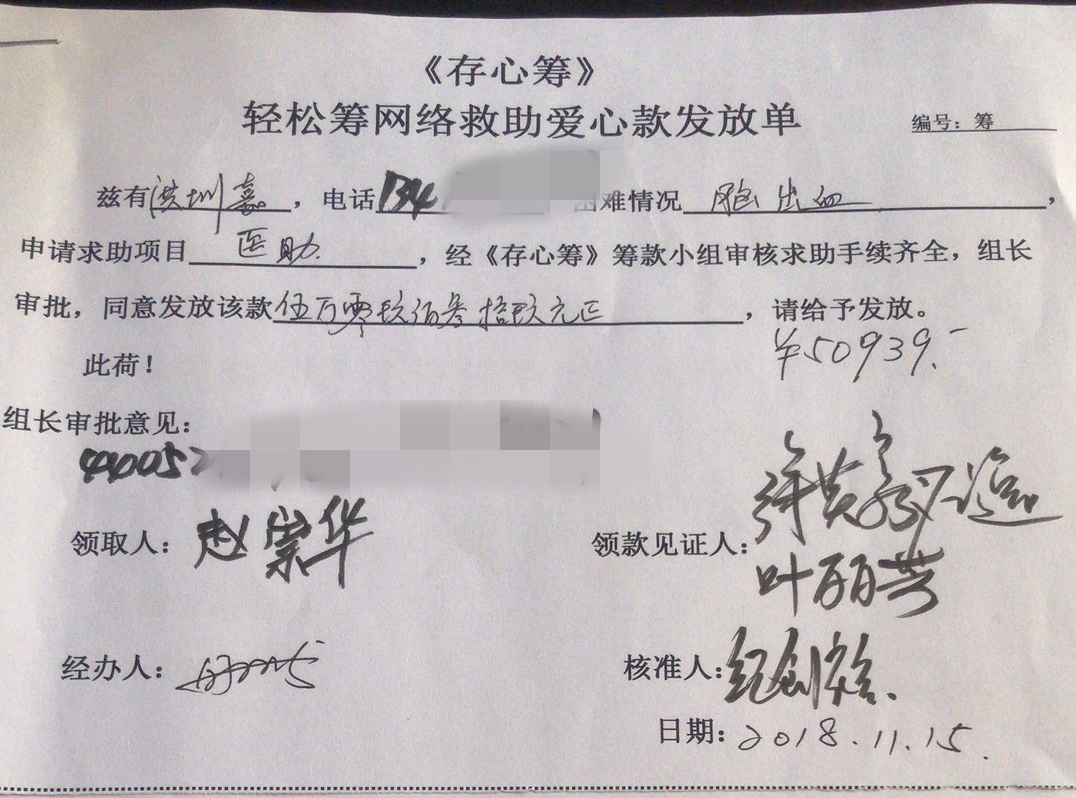 《存心筹》
轻松筹网络救助爱心款发放单
编号：筹
兹有洪圳嘉，电话134 困难情况脑出血，
申请求助项目医助，经《存心筹》筹款小组审核求助手续齐全，组长
审批，同意发放该款伍万零玖佰叁拾玖元正，请给予发放。
¥50939.-
此荷！
组长审批意见：
44052
领取人：赵崇华
领款见证人：
叶丽芸
经办人：
核准人：纪创
日期：2018.11.15.